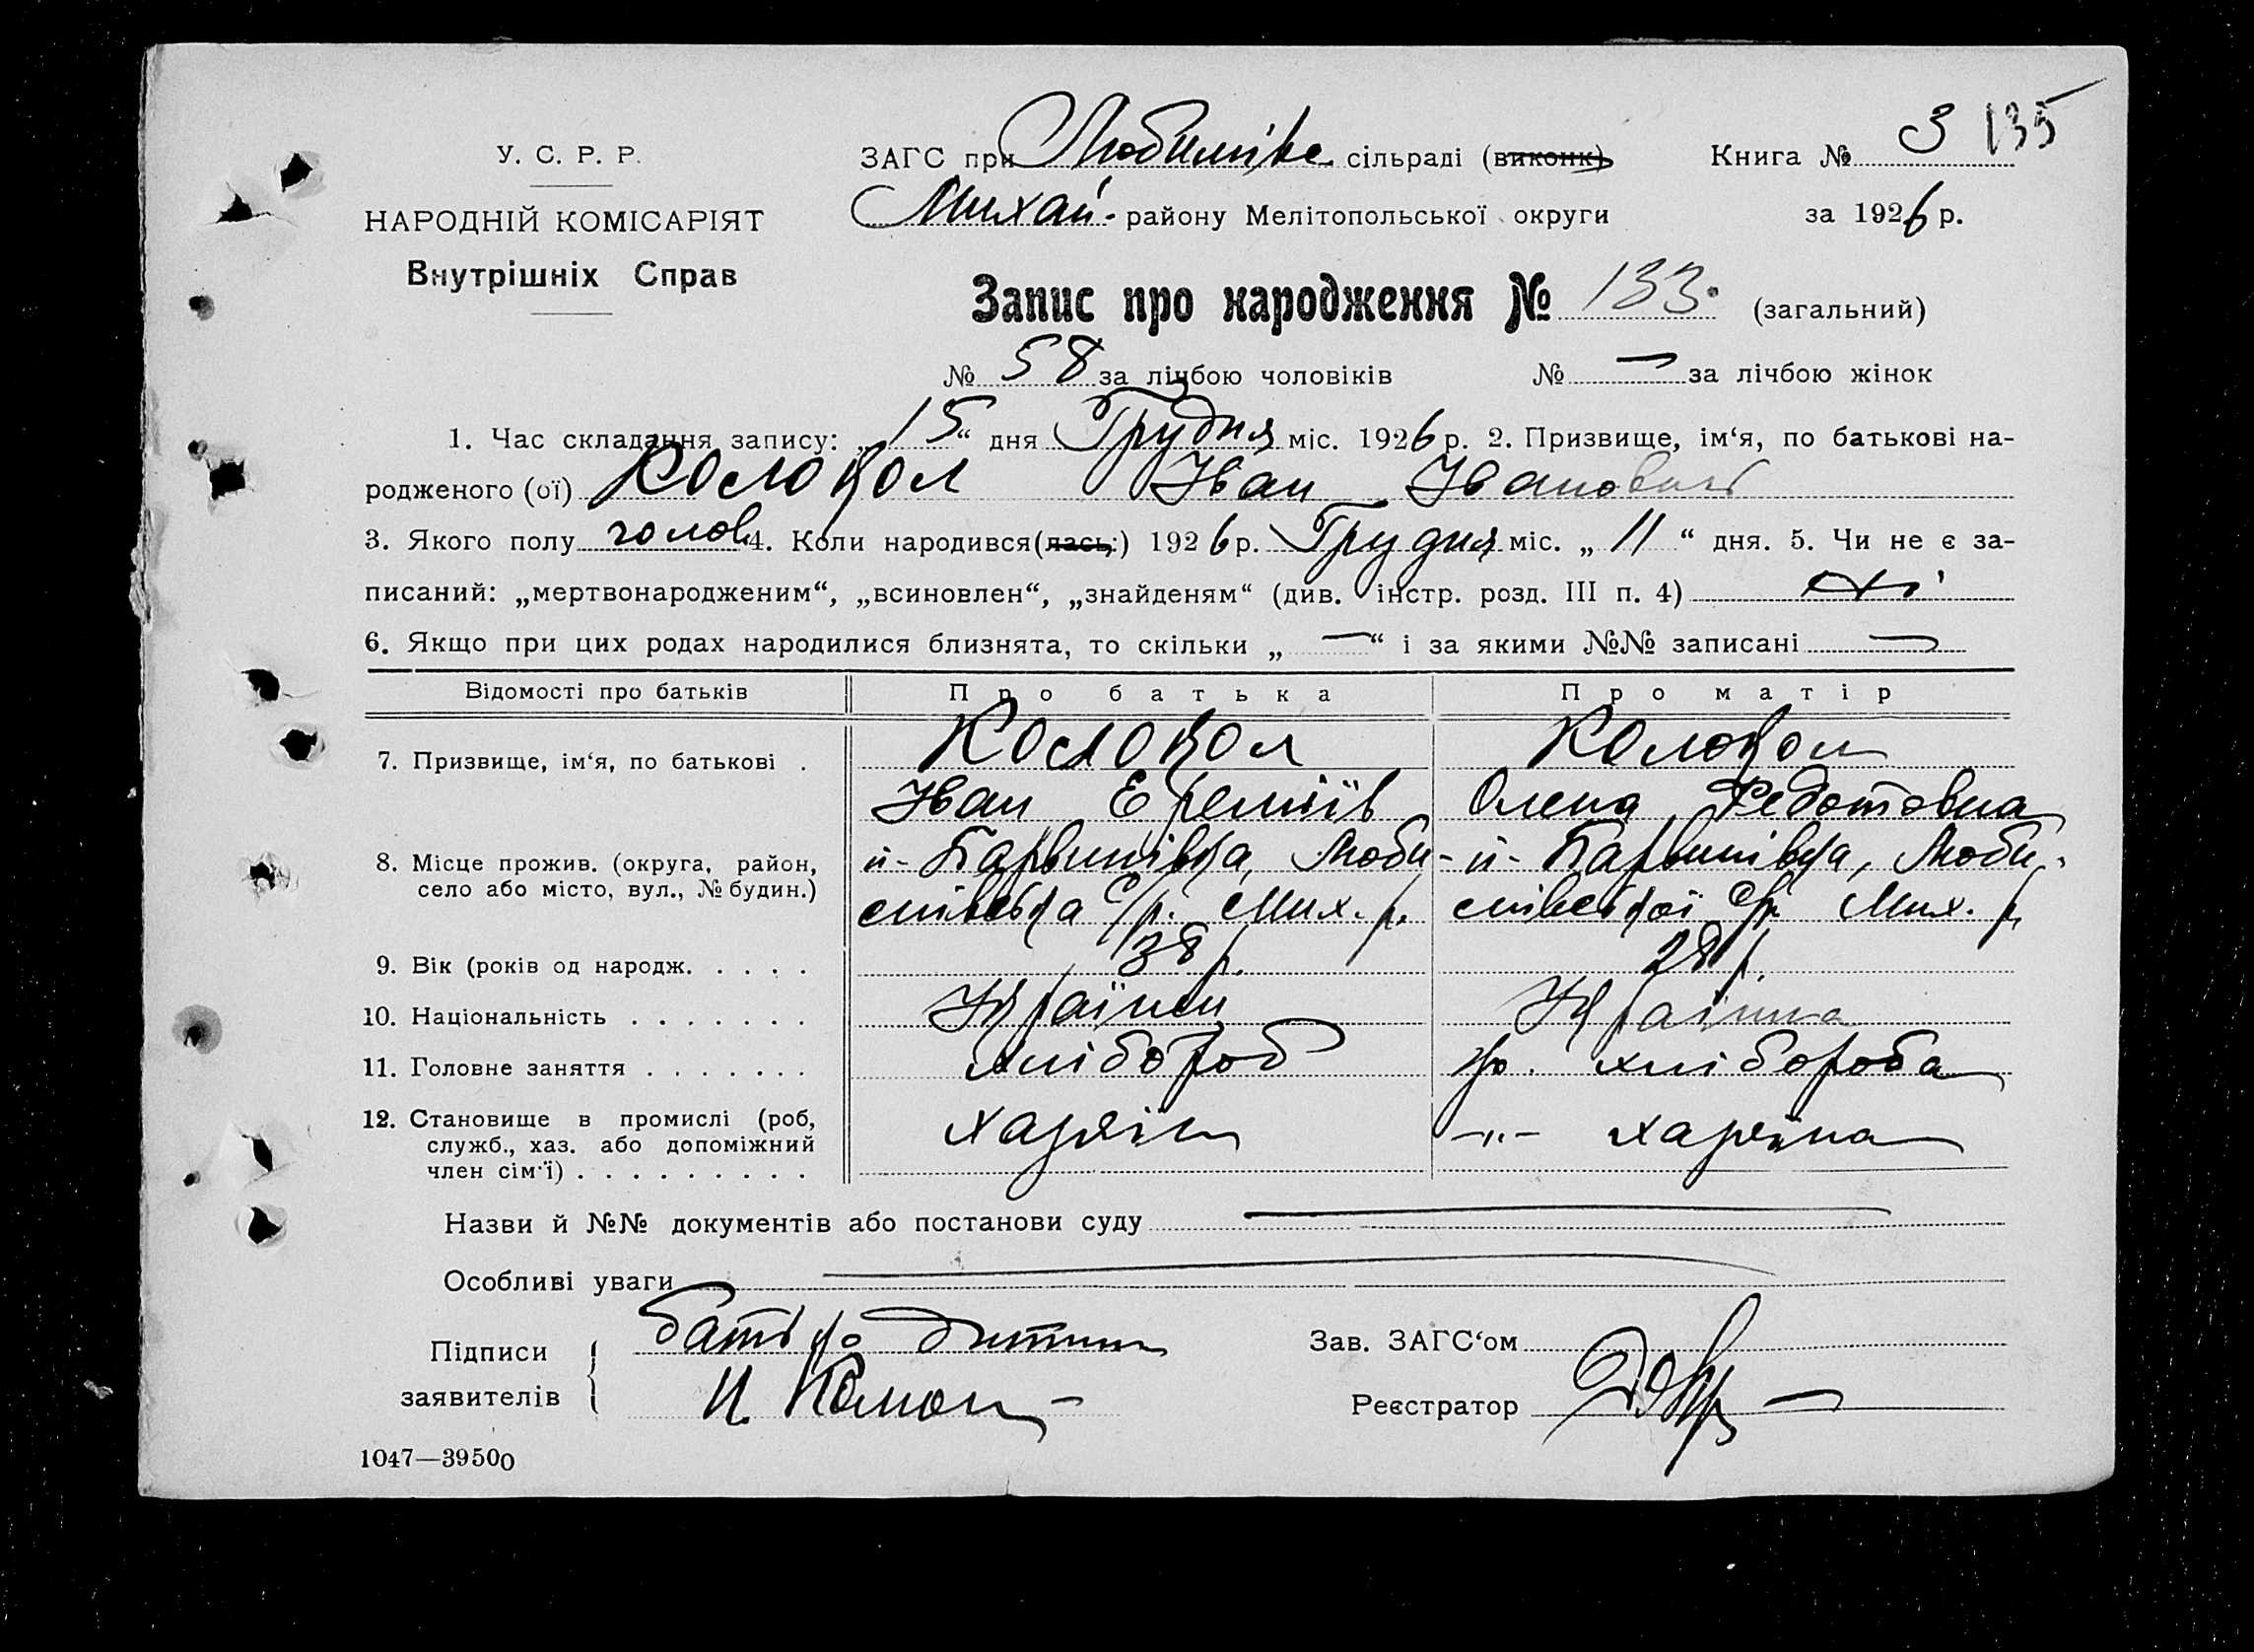 У. С. Р. Р.
НАРОДНІЙ КОМІСАРІЯТ
Внутрішніх Справ
ЗАГС при Любимівс. сільраді (виконк)
Книга № 3 135
Михай. району Мелітопольської округи
за 1926 р.
Запис про народження № 133. (загальний)
№ 58 за лічбою чоловіків № — за лічбою жінок
1. Час складання запису: „15“ дня Грудня міс. 1926 р. 2. Призвище, ім‘я, по батькові на-
родженого (ої) Колокол Іван Іванович
3. Якого полу чолов. 4. Коли народився (лась:) 1926 р. Грудня міс. „11“ дня. 5. Чи не є за-
писаний: „мертвонародженим“, „всиновлен“, „знайденям“ (див. інстр. розд. III п. 4) ні
6. Якщо при цих родах народилися близнята, то скільки „—“ і за якими №№ записані —
Відомості про батьків Про батька Про матір
7. Призвище, ім‘я, по батькові . Колокол Колокол
Іван Ереміїв Олена Федотовна
8. Місце прожив. (округа, район, Барвинівка, Люби- Барвинівка, Люби-
село або місто, вул., № будин.) мівська с/р. Мих. р. мівської с/р. Мих. р.
9. Вік (років од народж. . . . . 38 р. 28 р.
10. Національність . . . . . . . Українец Українка
11. Головне заняття . . . . . . . хлібороб хлібороба
12. Становище в промислі (роб, хазяїн -"- хазяїна
служб., хаз. або допоміжний
член сім'ї) . . . . . . . . .
Назви й №№ документів або постанови суду —
Особливі уваги —
Підписи заявителів
батько дитини
И. Колокол
Зав. ЗАГС‘ом
Реєстратор
1047—39500